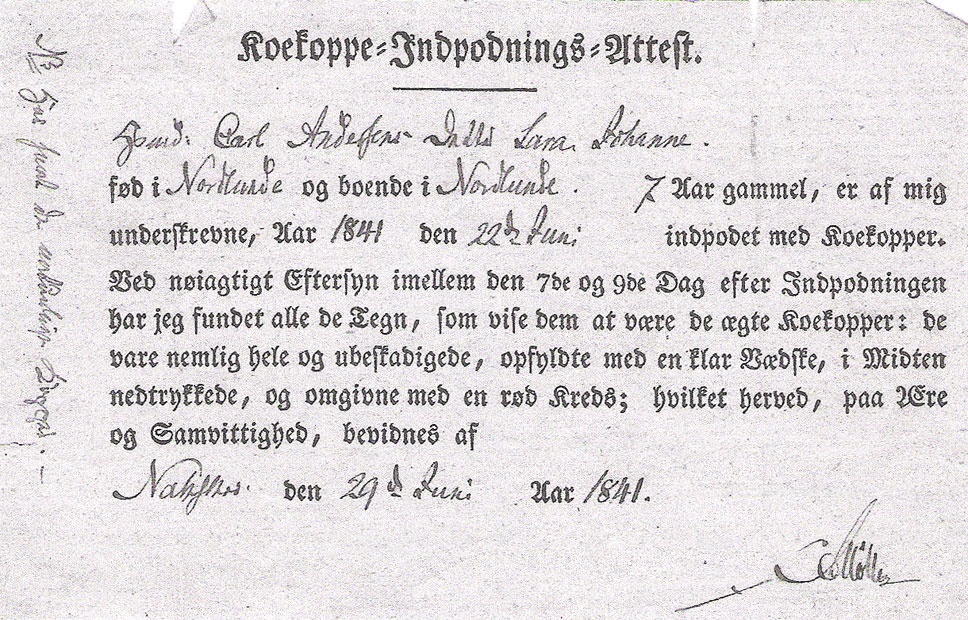 Koekoppe-Indpodnings-Attest.
Huusmd: Carl Andersens Datter Sara Johanne.
fød i Nordlunde og boende i Nordlunde. 7 Aar gammel, er af mig
underskrevne, Aar 1841 den 22de Juni indpodet med Koekopper.
Ved nøiagtigt Eftersyn imellem den 7de og 9de Dag efter Indpodningen
har jeg fundet alle de Tegn, som vise dem at være de ægte Koekopper: de
vare nemlig hele og ubeskadigede, opfyldte med en klar Vædske, i Midten
nedtrykkede, og omgivne med en rød Kreds; hvilket herved, paa Ære
og Samvittighed, bevidnes af
Nakskov. den 29d Juni Aar 1841.
Møller
NB Har havt de